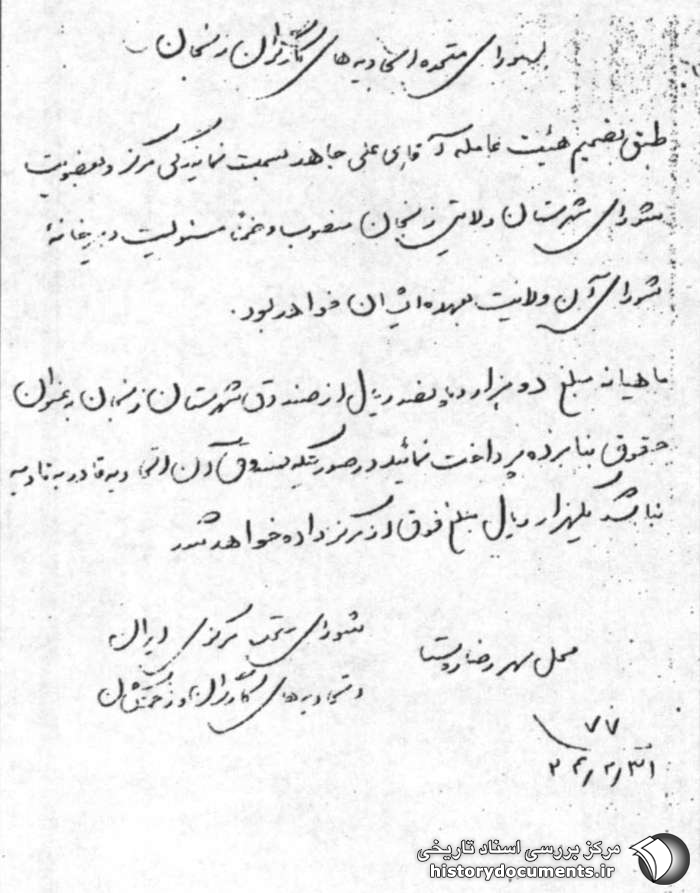 شورای متحده اتحادیه های کارگران زنجان
طبق تصمیم هیئت عامله آقای علی جاهد بسمت نمایندگی مرکز و بعضویت
شورای شهرستان ولایتی زنجان منصوب و ضمناً مسئولیت دبیرخانهٔ
شورای آن ولایت بعهده ایشان خواهد بود.
ماهیانه مبلغ دو هزار و پانصد ریال از صندوق شهرستان زنجان بعنوان
حقوق بنامبرده پرداخت نمائید در صورتیکه صندوق آن اتحادیه قادر به تادیه
نباشد یکهزار ریال مبلغ فوق از مرکز داده خواهد شد
شورای متحده مرکزی ایران
اتحادیه های کارگران و زحمتکشان
محل مهر رضا روستا
۷۷
۲۴/۲/۳۱
مرکز بررسی اسناد تاریخی
historydocuments.ir